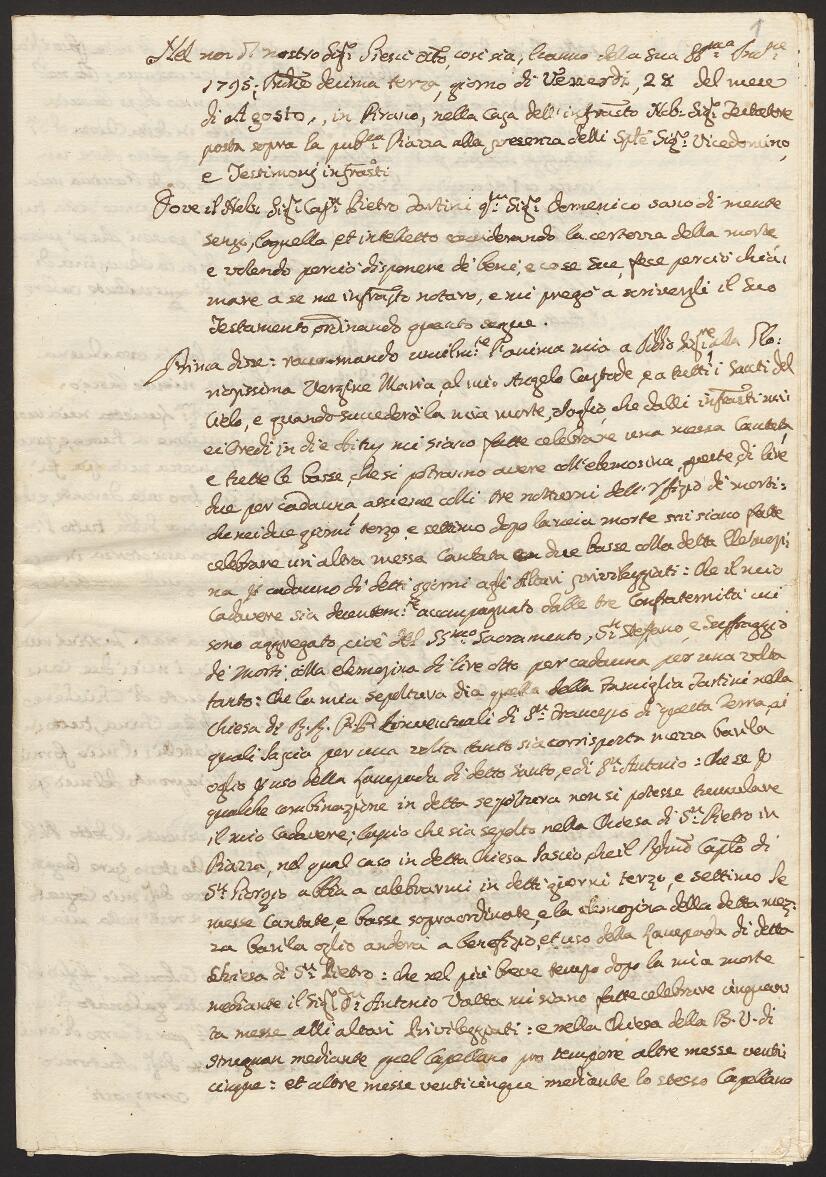 1
Nel nome di nostro Sigr Giesu Cristo così sia, l'anno della Sua SSma Incne
1795; Indne decima terza, giorno di Venerdi, 28 del mese
di Agosto, in Pirano, nella Casa dell'infrascto Nob: Sigr Testatore
posta sopra la pubca Piazza alla presenza delli Splè Sigr Vicedomino,
e Testimonj infrascti
Dove il Nobe Sigr Capn Pietro Tartini qm Sigr Domenico sano di mente
senso, loquella, et intelletto considerando la certezza della morte
e volendo perciò disponere de' beni, e cose sue, fece perciò chia:
mare a se me infrascto notaro, e mi pregò a scrivergli il suo
Testamento ordinando quanto segue.
Prima disse: raccomando umilmte l'anima mia a Iddio Sigre alla Glo:
riosissima Vergine Maria, al mio Angelo Custode, e a tutti i Santi del
Cielo, e quando succederà la mia morte, voglio, che dalli infrascti miei
eredi in die obitus mi siano fatte celebrare una messa Cantata,
e tutte le basse, che si potranno avere coll'elemosina, queste, di lire
due per cadauna assieme colli tre notturni dell'Offizio de' morti:
che nei due giorni terzo, e settimo dopo la mia morte mi siano fatte
celebrare un'altra messa Cantata con due basse colla detta Elemosi:
na p cadauno di detti giorni agli Altari privileggiati: Che il mio
Cadavere sia decentemte accompagnato dalle tre Confraternità cui
sono aggregato, cioè del SSmo Sacramento, Sn Steffano, e Suffraggio
de' Morti colla elemosina di lire otto per cadauna per una volta
tanto: Che la mia sepoltura sia quella della Famiglia Tartini nella
Chiesa di R.R. P.P. Conventuali di Sn Francesco di questa Terra, ai
quali lascio per una volta tanto sia corrisposta mezza barila
oglio p uso della Lampada di detto Santo, e di Sn Antonio: Che se p
qualche combinazione in detta sepoltura non si potesse tumulare
il mio Cadavere; lascio che sia sepolto nella Chiesa di Sn Pietro in
Piazza, nel qual caso in detta Chiesa lascio, che il Rdmo Caplo di
Sn Giorgio abbia a celebrarmi in detti giorni terzo, e settimo le
messe Cantate, e basse sopraordinate, e la elemosina della detta mez:
za barila oglio anderà a benefizio, et uso della Lampada di detta
Chiesa di Sn Pietro: che nel più breve tempo dopo la mia morte
mediante il Sigr Dn Antonio Vatta mi siano fatte celebrare cinquan:
ta messe alli altari Privileggiati: e nella Chiesa della B.V. di
Strugnan mediante quel Capellano pro tempore altre messe venti
cinque: et altre messe venticinque mediante lo stesso Capellano